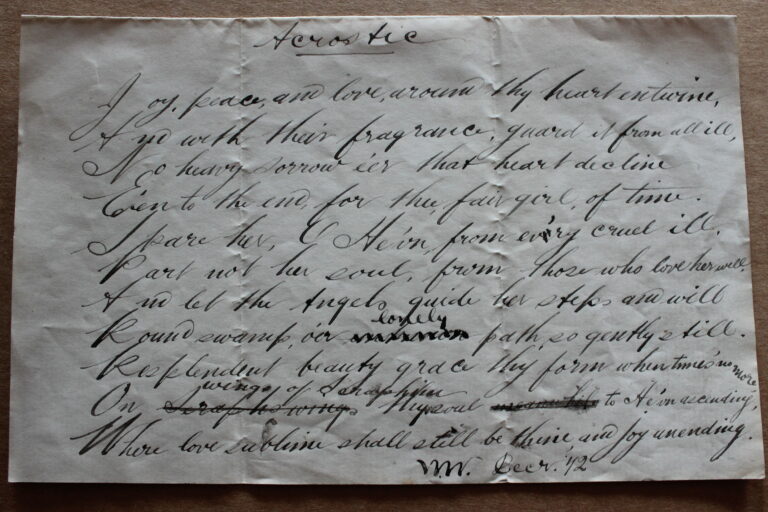 Acrostic
Joy, peace, and love, around thy heart entwine,
And with their fragrance, guard it from all ill,
No heavy sorrow e'er that heart decline
E'en to the end, for thee, fair girl, of time.
Spare her, O Heav'n, from ev'ry cruel ill.
Part not her soul, from those who love her well.
And let the Angels guide her steps and will
Round swamp, o'er lonely path, so gently still.
Resplendent beauty grace thy form when time's no more,
On wings of Seraphim thy soul to Heav'n ascending,
Where love sublime shall still be thine, and joy unending.
W.W. Decr. '72